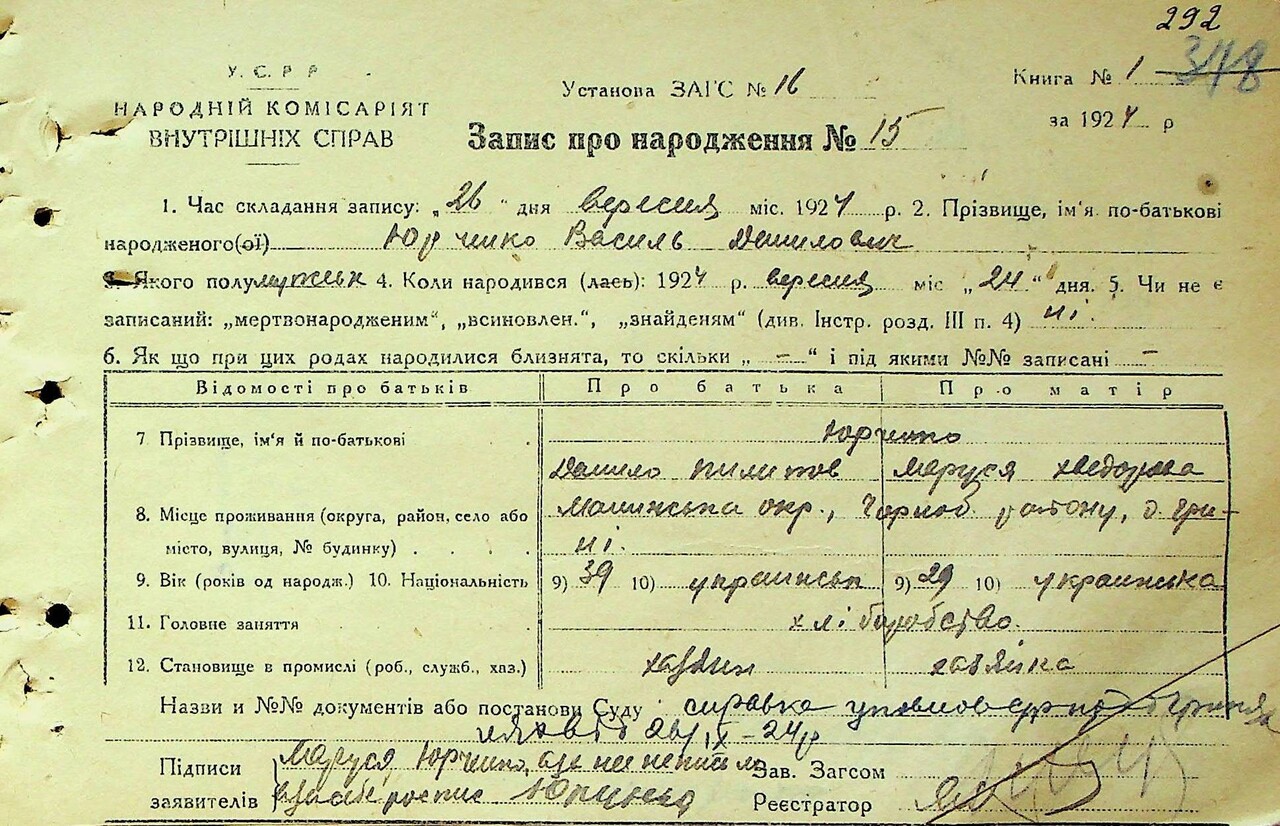 292
У. С. Р. Р. Установа ЗАГС № 16 Книга № 1 378
НАРОДНІЙ КОМІСАРІЯТ
ВНУТРІШНІХ СПРАВ
за 1924 р
Запис про народження № 15
1. Час складання запису: „26“ дня вересня міс. 1924 р. 2. Прізвище, ім'я по-батькові
народженого(ої) Юрченко Василь Данилович
3. Якого полу мужськ 4. Коли народився (лась): 1924 р. вересня міс „24“ дня. 5. Чи не є
записаний: „мертвонародженим“, „всиновлен.“, „знайденям“ (див. Інстр. розд. III п. 4) ні.
6. Як що при цих родах народилися близнята, то скільки „ — “ і під якими №№ записані —
Відомості про батьків Про батька Про матір
7 Прізвище, ім'я й по-батькові Юрченко
Данило Пилипов Маруся
8. Місце проживання (округа, район, село або окр., Чорноб. району, с. Гри-
місто, вулиця, № будинку) ні.
9. Вік (років од народж.) 10. Національність 9) 39 10) украинськ 9) 29 10) украинська
11. Головне заняття хліборобство.
12. Становище в промислі (роб., служб., хаз.) хазяин хазяйка
Назви и №№ документів або постанови Суду справка
24р
Підписи Маруся Юрченко, Зав. Загсом
заявителів роспис Реєстратор